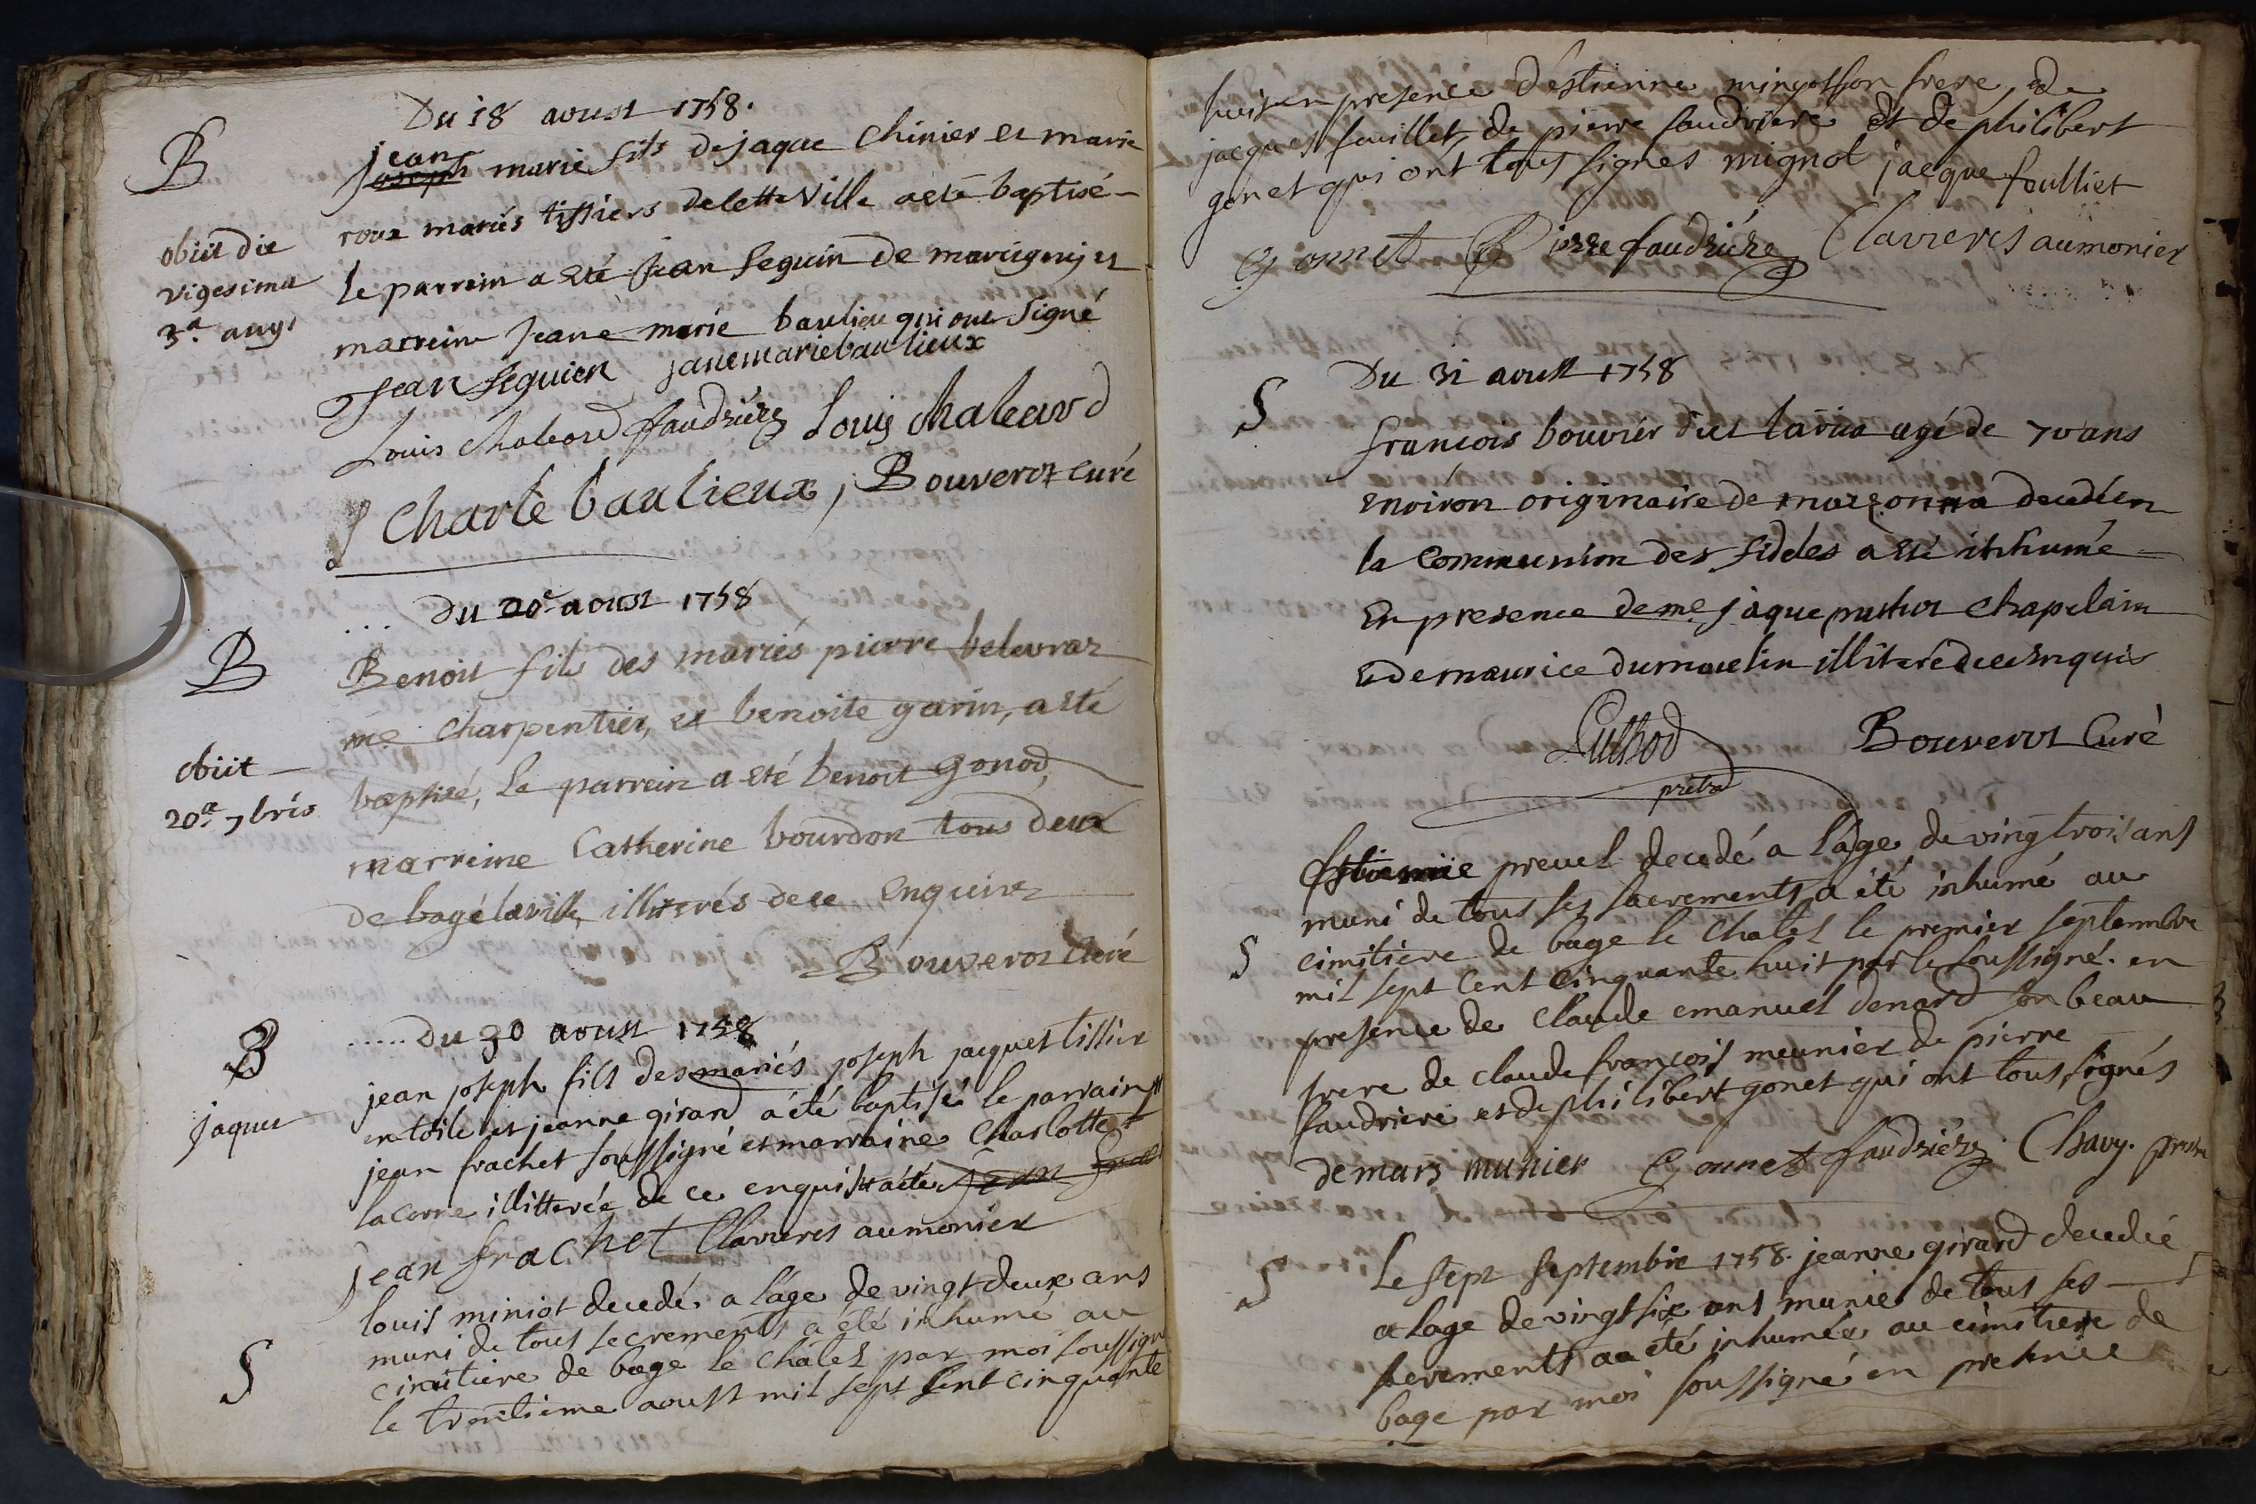 Du 18 aoust 1758.
B
jean
joseph marie fils de jaque Chinier et marie
roux mariés tissiers de cette Ville a esté baptisé
obiit die
vigesima
3a. augi
le parrein a eté jean seguin de marcigny et
marreine jeane marie baulieu qui ont signé
jean seguien janemariebaulieux
Louis Chaleard faudrière Louis Chaleard
Charle baulieux, Bouverot curé
... Du 20e aoust 1758
B
Benoit fils des mariés pierre belouraz
me charpentier, et benoite garin, a eté
obiit
20a. 7bris
baptisé, le parrein a eté benoit gonod,
marreine Catherine bourdon tous deux
de bagé la ville, illiterés de ce enquires
Bouverot Curé
..... Du 30 aoust 1758
B
jaques
jean joseph fils des mariés joseph jacquet tissier
en toile et jeanne girard a été baptisé le parrain
jean frachet soussigné et marraine Charlotte
lacorne illitterée de ce enquise acté jean frac
jean frachet Clavieres aumonier
S
louis miniot decedé a l'age de vingt deux ans
muni de tous secrements a été inhumé au
cimitiere de bage le châtel par moi soussigné
le trentieme aoust mil sept cent cinquante
huit en presence d'estienne mingot son frere, de
jacques fouillet, de pierre faudriere et de philibert
gonet qui ont tous signes mignot jacque foulliet
gonnet Pierre faudriére Clavieres aumonier
Du 31 aoust 1758
S
francois bouvier dit lavia agé de 70 ans
environ originaire de marsonna decedé en
la communion des fideles a eté inhumé
en presence de me jaque puthot chapelain
et de maurice dumoulin illiteré de ce enquis
Puthod Bouverot Curé
prêtre
S
Estienne prevel decedé a l'age de vingt trois ans
muni de tous ses sacrements a été inhumé au
cimitiere de bage le chatel le premier septembre
mil sept cent cinquante huit par le soussigné. en
presence de Claude emanuel denard son beau
frere de claude françois meunier de pierre
faudriere et de philibert gonet qui ont tous signés
demars munier Gonnet faudriére Chavy. prestre
S
Le sept septembre 1758. jeanne girard decedée
a l'age de vingt six ans munie de tous ses
sacrements a été inhumée au cimitiere de
bage par moi soussigné en presence